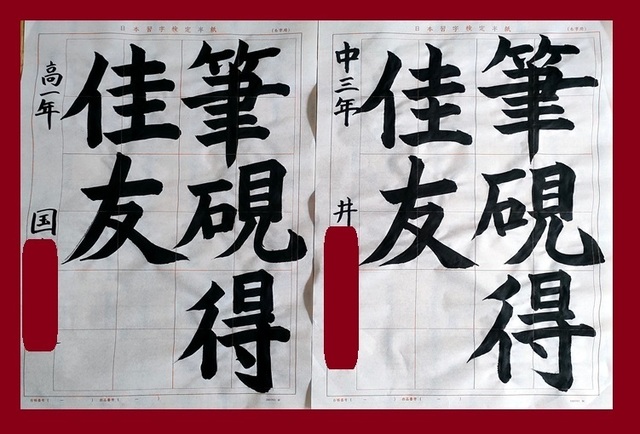 日本習字検定半紙
筆硯得
佳友
高一年 国
日本習字検定半紙
筆硯得
佳友
中三年 井